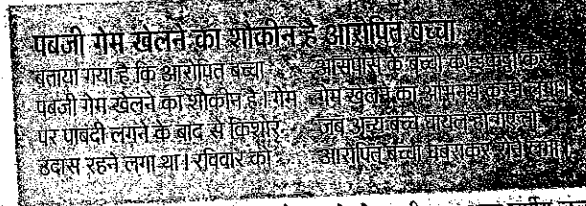 पबजी गेम खेलने का शौकीन है आरोपित बच्चा
बताया गया है कि आरोपित बच्चा
पबजी गेम खेलने का शौकीन है। गेम
पर पाबंदी लगने के बाद से किशोर
उदास रहने लगा था। रविवार को
आसपास के बच्चों को इकट्ठा कर
गेम खेलने का अभिनय करने लगा।
जब अन्य बच्चे घायल हो गए तो
आरोपित बच्चा घबराकर रोने लगा।